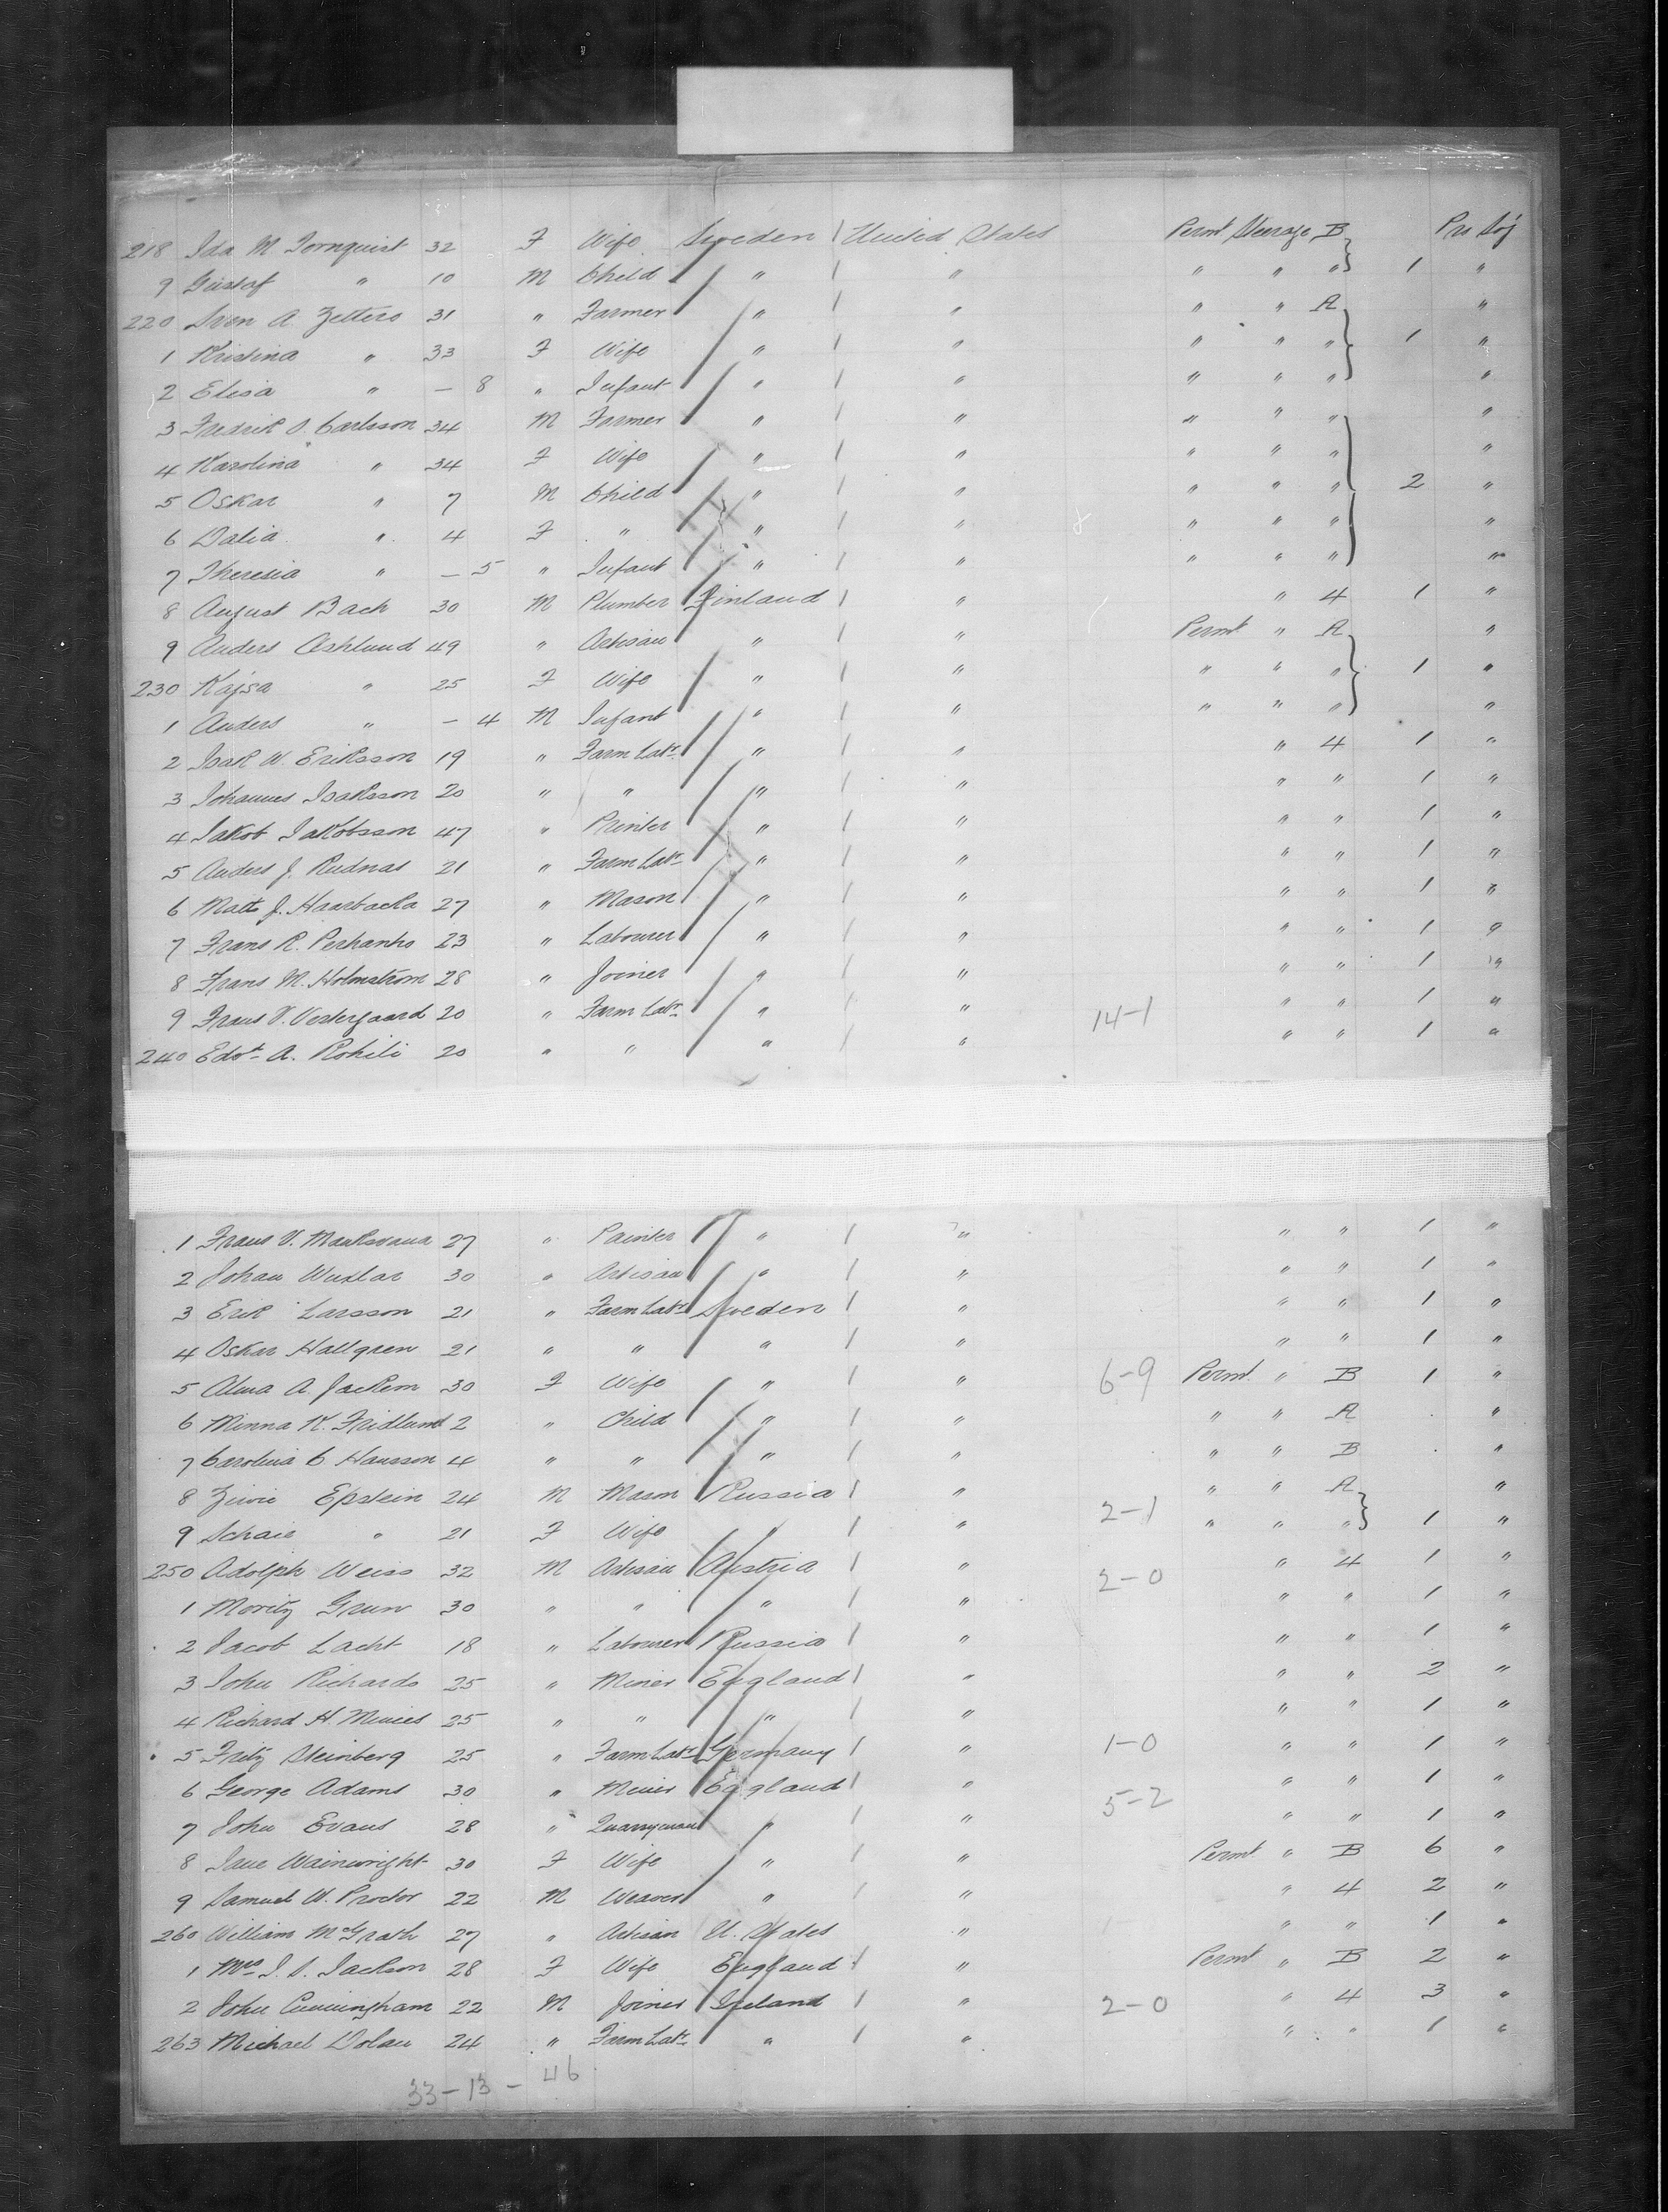 218 Ida M Tornquist 32 F Wife Sweden 1 United States Permt Steerage B Pro Soj
9 Gustaf " 10 M Child " 1 " " " " 1 "
220 Sven A. Zetters 31 " Farmer " 1 " " " A "
1 Kristina " 33 F Wife " 1 " " " " 1 "
2 Elisa " — 8 " Infant " 1 " " " " "
3 Fredrik O. Carlsson 34 M Farmer " 1 " " " " "
4 Karolina " 34 F Wife " 1 " " " " "
5 Oskar " 7 M Child " 1 " " " " 2 "
6 Dalia " 4 F " " 1 " " " " "
7 Theresia " — 5 " Infant " 1 " " " " "
8 August Bach 30 M Plumber Finland 1 " " 4 1 "
9 Anders Ashlund 49 " Artisan " 1 " Permt " A "
230 Kajsa " 25 F Wife " 1 " " " " 1 "
1 Anders " — 4 M Infant " 1 " " " " "
2 Isak W. Eriksson 19 " Farm Labr " 1 " " 4 1 "
3 Johannes Isaksson 20 " " " 1 " " " 1 "
4 Jakob Jakobsson 47 " Printer " 1 " " " 1 "
5 Anders J. Rudnas 21 " Farm Labr " 1 " " " 1 "
6 Matts J. Haarbacka 27 " Mason " 1 " " " 1 "
7 Frans R. Perhanho 23 " Labourer " 1 " " " 1 "
8 Frans M. Holmstrom 28 " Joiner " 1 " " " 1 "
9 Frans V. Vestergaard 20 " Farm Labr " 1 " 14-1 " " 1 "
240 Edvt A. Rohili 20 " " " 1 " " " 1 "
1 Frans V. 27 " Painter " 1 " " " 1 "
2 Johan Wuxlar 30 " Artisan " 1 " " " 1 "
3 Erik Larsson 21 " Farm Labr Sweden 1 " " " 1 "
4 Oskar Hallgren 21 " " " 1 " " " 1 "
5 Alma A. Jackem 30 F Wife " 1 " 6-9 Permt " B 1 "
6 Minna K. Fridlund 2 " Child " 1 " " " A "
7 Carolina C Hansson 4 " " " 1 " " " B "
8 Ziwie Epstein 24 M Mason Russia 1 " 2-1 " " A "
9 Schaie " 21 F Wife " 1 " " " " 1 "
250 Adolph Weiss 32 M Artisan Austria 1 " 2-0 " 4 1 "
1 Moritz Grun 30 " " " 1 " " " 1 "
2 Jacob Lacht 18 " Labourer Russia 1 " " " 1 "
3 John Richards 25 " Miner England 1 " " " 2 "
4 Richard H. 25 " " " 1 " " " 1 "
5 Fritz Steinberg 25 " Farm Labr Germany 1 " 1-0 " " 1 "
6 George Adams 30 " Miner England 1 " 5-2 " " 1 "
7 John Evans 28 " Quarryman " 1 " " " 1 "
8 Jane Wainwright 30 F Wife " 1 " Permt " B 6 "
9 Samuel W. Proctor 22 M Weaver " 1 " " 4 2 "
260 William McGrath 27 " Artisan U. States " " " 1 "
1 Mrs J. S. Jackson 28 F Wife England 1 " Permt " B 2 "
2 John Cunningham 22 M Joiner Ireland 1 " 2-0 " 4 3 "
263 Michael Dolan 24 " Farm Labr " 1 " " " 1 "
33-13-46